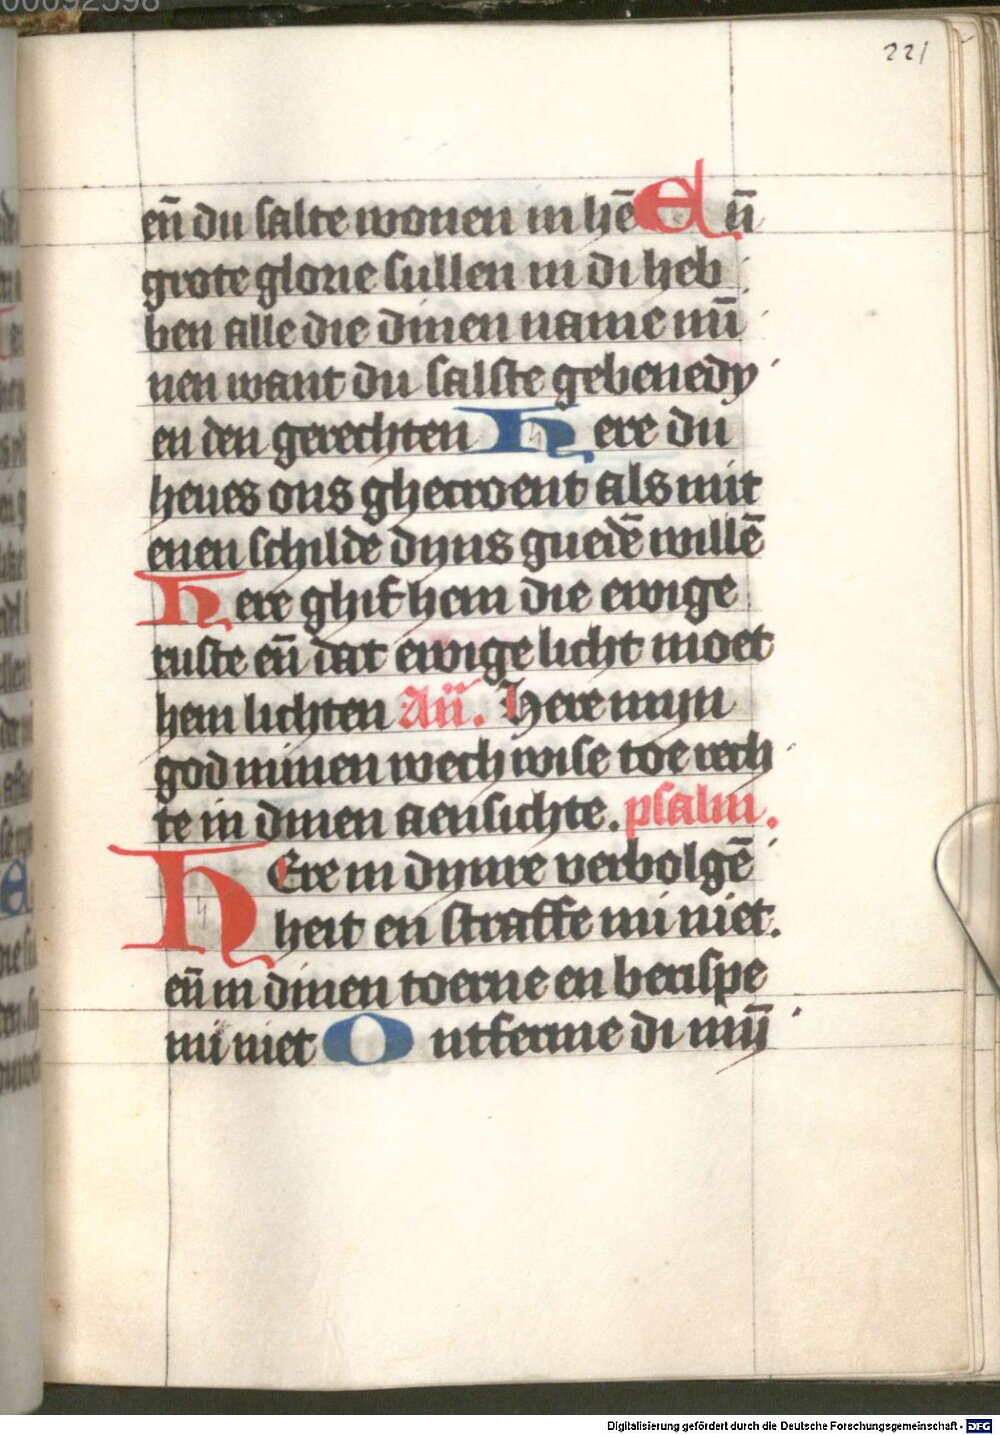 00092598
221
en̄ du salte wonen in hē En̄
grote glorie sullen in di heb
ben alle die dinen name mīn
nen want du salste gebenedy
en den gerechten Here du
heues ons ghecroent als mit
enen schilde dijns guedē willē
Here ghif hem die ewige
ruste en̄ dat ewige licht moet
hem lichten An̄. Here mijn
god minen wech wise toe rech
te in dinen aensichte. psalm.
HEre in dijnre verbolgē
heit en straffe mi niet.
en̄ in dinen toerne en berispe
mi niet Ontferme di mȳ
Digitalisierung gefördert durch die Deutsche Forschungsgemeinschaft - DFG